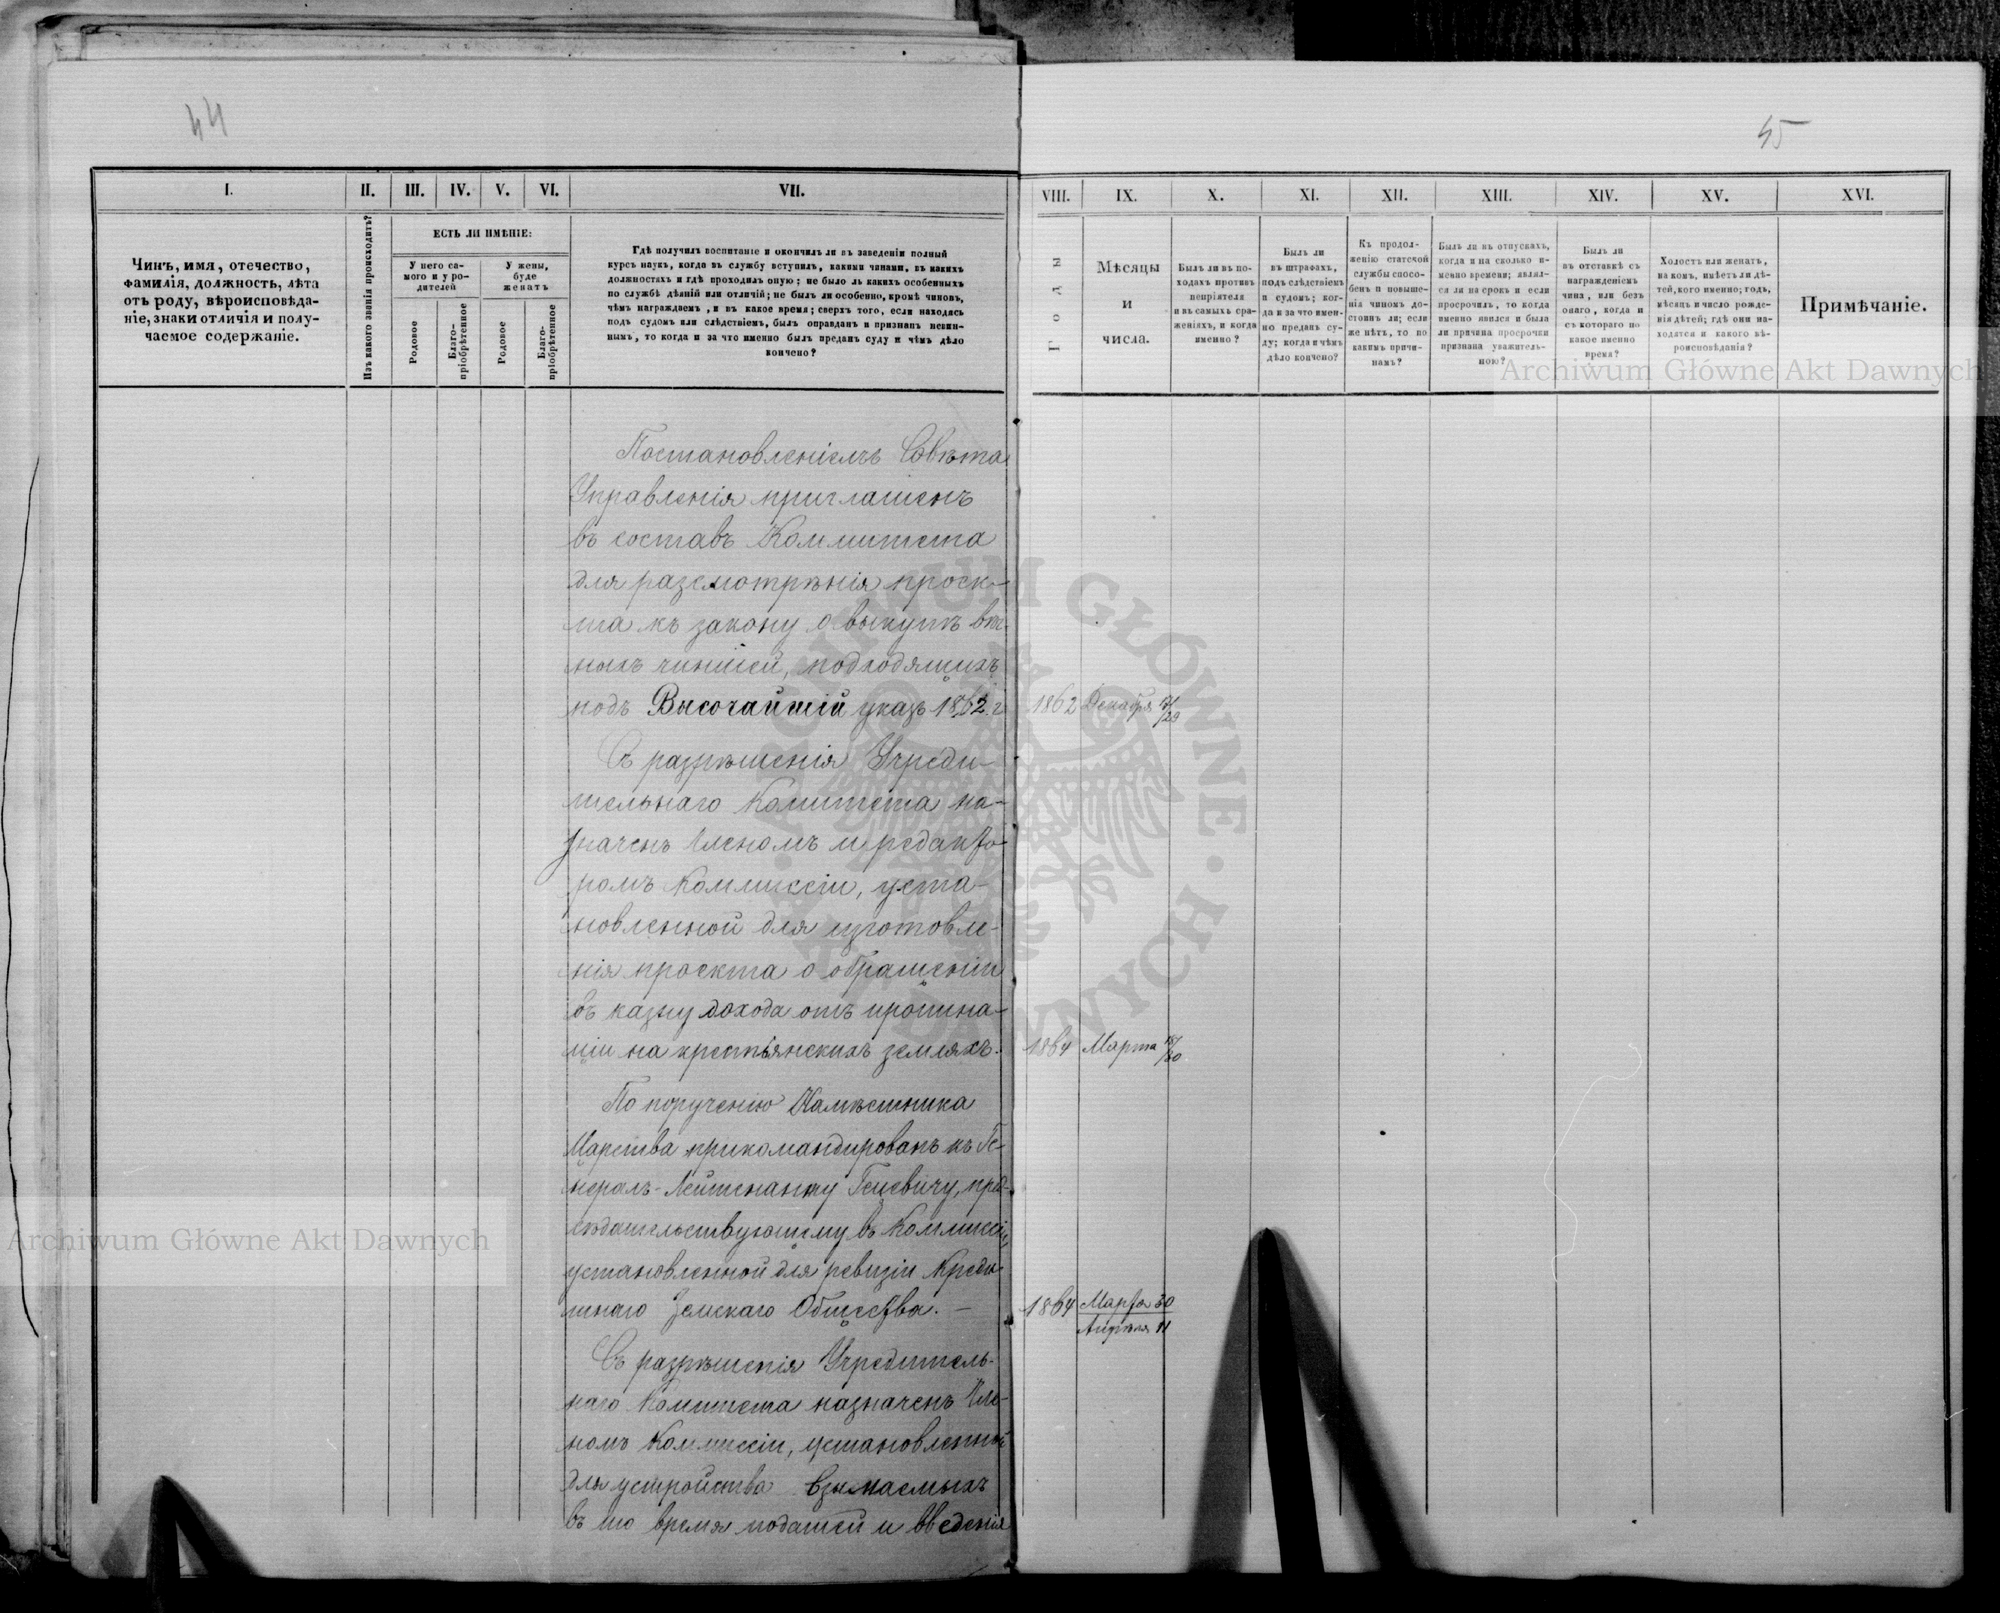 44
I.
II.
III.
IV.
V.
VI.
VII.
Чинъ, имя, отечество,
фамилія, должность, лѣта
отъ роду, вѣроисповѣда-
ніе, знаки отличія и полу-
чаемое содержаніе.
Изъ какого званія происходитъ?
ЕСТЬ ЛИ ИМѢНІЕ:
У него са-
мого и у ро-
дителей
У жены,
буде
женатъ
Родовое
Благо-
пріобрѣтенное
Родовое
Благо-
пріобрѣтенное
Гдѣ получилъ воспитаніе и окончилъ ли въ заведеніи полный
курсъ наукъ, когда въ службу вступилъ, какими чинами, въ какихъ
должностяхъ и гдѣ проходилъ оную; не было ль какихъ особенныхъ
по службѣ дѣяній или отличій; не былъ ли особенно, кромѣ чиновъ,
чѣмъ награждаемъ, и въ какое время; сверхъ того, если находясь
подъ судомъ или слѣдствіемъ, былъ оправданъ и признанъ невин-
нымъ, то когда и за что именно былъ преданъ суду и чѣмъ дѣло
кончено?
Постановленіемъ Совѣта
Управленія приглашенъ
въ составъ Коммитета
для разсмотрѣнія проек-
та къ закону о выкупѣ вѣч-
ныхъ чиншей, подходящихъ
подъ Высочайшій указъ 1862 г
Съ разрѣшенія Учреди-
тельнаго Комитета на-
значенъ Членомъ и редакто-
ромъ Коммиссіи, уста-
новленной для изготовле-
нія проекта о обращеніи
въ казну дохода отъ пропина-
ціи на крестьянскихъ земляхъ.
По порученію Намѣстника
Царства прикомандированъ къ Ге-
нералъ-Лейтенанту Гецевичу, пред-
сѣдательствующему въ Коммиссіи,
установленной для ревизіи Креди-
тнаго Земскаго Общества. —
Съ разрѣшенія Учредитель-
наго Комитета назначенъ Чле-
номъ Коммиссіи, установленной
для устройства взымаемыхъ
въ то время податей и введенія
45
VIII.
IX.
X.
XI.
XII.
XIII.
XIV.
XV.
XVI.
Годы
Мѣсяцы
и
числа.
Былъ ли въ по-
ходахъ противъ
непріятеля
и въ самыхъ сра-
женіяхъ, и когда
именно?
Былъ ли
въ штрафахъ,
подъ слѣдствіемъ
и судомъ; ког-
да и за что имен-
но преданъ су-
ду; когда и чѣмъ
дѣло кончено?
Къ продол-
женію статской
службы спосо-
бенъ и повыше-
нія чиномъ до-
стоинъ ли; если
же нѣтъ, то по
какимъ причи-
намъ?
Былъ ли въ отпускахъ,
когда и на сколько и-
менно времени; являл-
ся ли на срокъ и если
просрочилъ, то когда
именно явился и была
ли причина просрочки
признана уважитель-
ною?
Былъ ли
въ отставкѣ съ
награжденіемъ
чина, или безъ
онаго, когда и
съ котораго по
какое именно
время?
Холостъ или женатъ,
на комъ, имѣетъ ли дѣ-
тей, кого именно; годъ,
мѣсяцъ и число рожде-
нія дѣтей; гдѣ они на-
ходятся и какого вѣ-
роисповѣданія?
Примѣчаніе.
1862 Декабря 17/29
1864 Марта 18/30
1864 Марта 30
Апрѣля 11
Archiwum Główne Akt Dawnych
Archiwum Główne Akt Dawnych
ARCHIWUM GŁÓWNE · AKT DAWNYCH ·